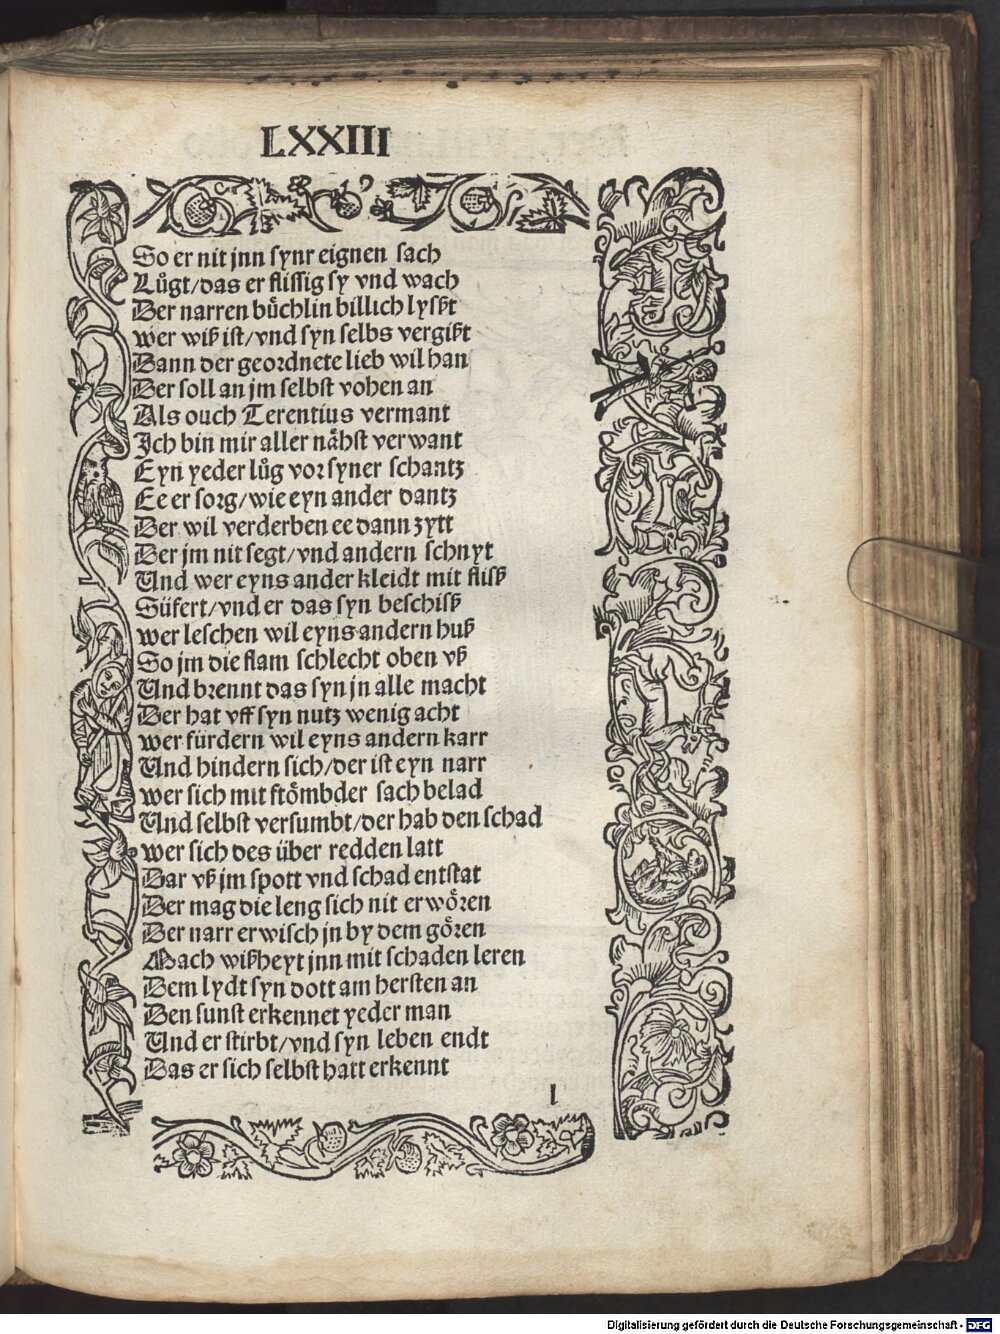 LXXIII
So er nit jnn synr eignen sach
Luͦgt/das er flissig sy vnd wach
Der narren buͤchlin billich lyszt
wer wiß ist/vnd syn selbs vergißt
Dann der geordnete lieb wil han
Der soll an jm selbst vohen an
Als ouch Terentius vermant
Jch bin mir aller naͤhst verwant
Eyn yeder luͦg vor syner schantz
Ee er sorg/wie eyn ander dantz
Der wil verderben ee dann zytt
Der jm nit segt/vnd andern schnyt
Und wer eyns ander kleidt mit fliß
Süfert/vnd er das syn beschiß
wer leschen wil eyns andern huß
So jm die flam schlecht oben vß
Und brennt das syn jn alle macht
Der hat vff syn nutz wenig acht
wer fürdern wil eyns andern karr
Und hindern sich/der ist eyn narr
wer sich mit froͤmbder sach belad
Und selbst versumbt/der hab den schad
wer sich des über redden latt
Dar vß jm spott vnd schad entstat
Der mag die leng sich nit erwoͤren
Der narr erwisch jn by dem goͤren
Mach wißheyt jnn mit schaden leren
Dem lydt syn dott am hersten an
Den sunst erkennet yeder man
Und er stirbt/vnd syn leben endt
Das er sich selbst hatt erkennt
l
Digitalisierung gefördert durch die Deutsche Forschungsgemeinschaft - DFG